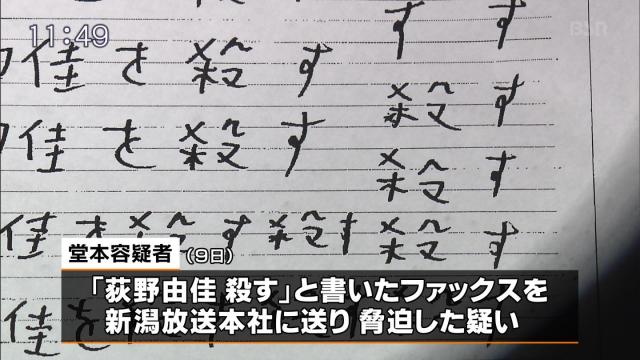 11:49
BSN
す す
佳を殺す 殺す
佳を殺す 殺す
佳を殺す殺す殺す
堂本容疑者(9日)
「荻野由佳 殺す」と書いたファックスを
新潟放送本社に送り 脅迫した疑い